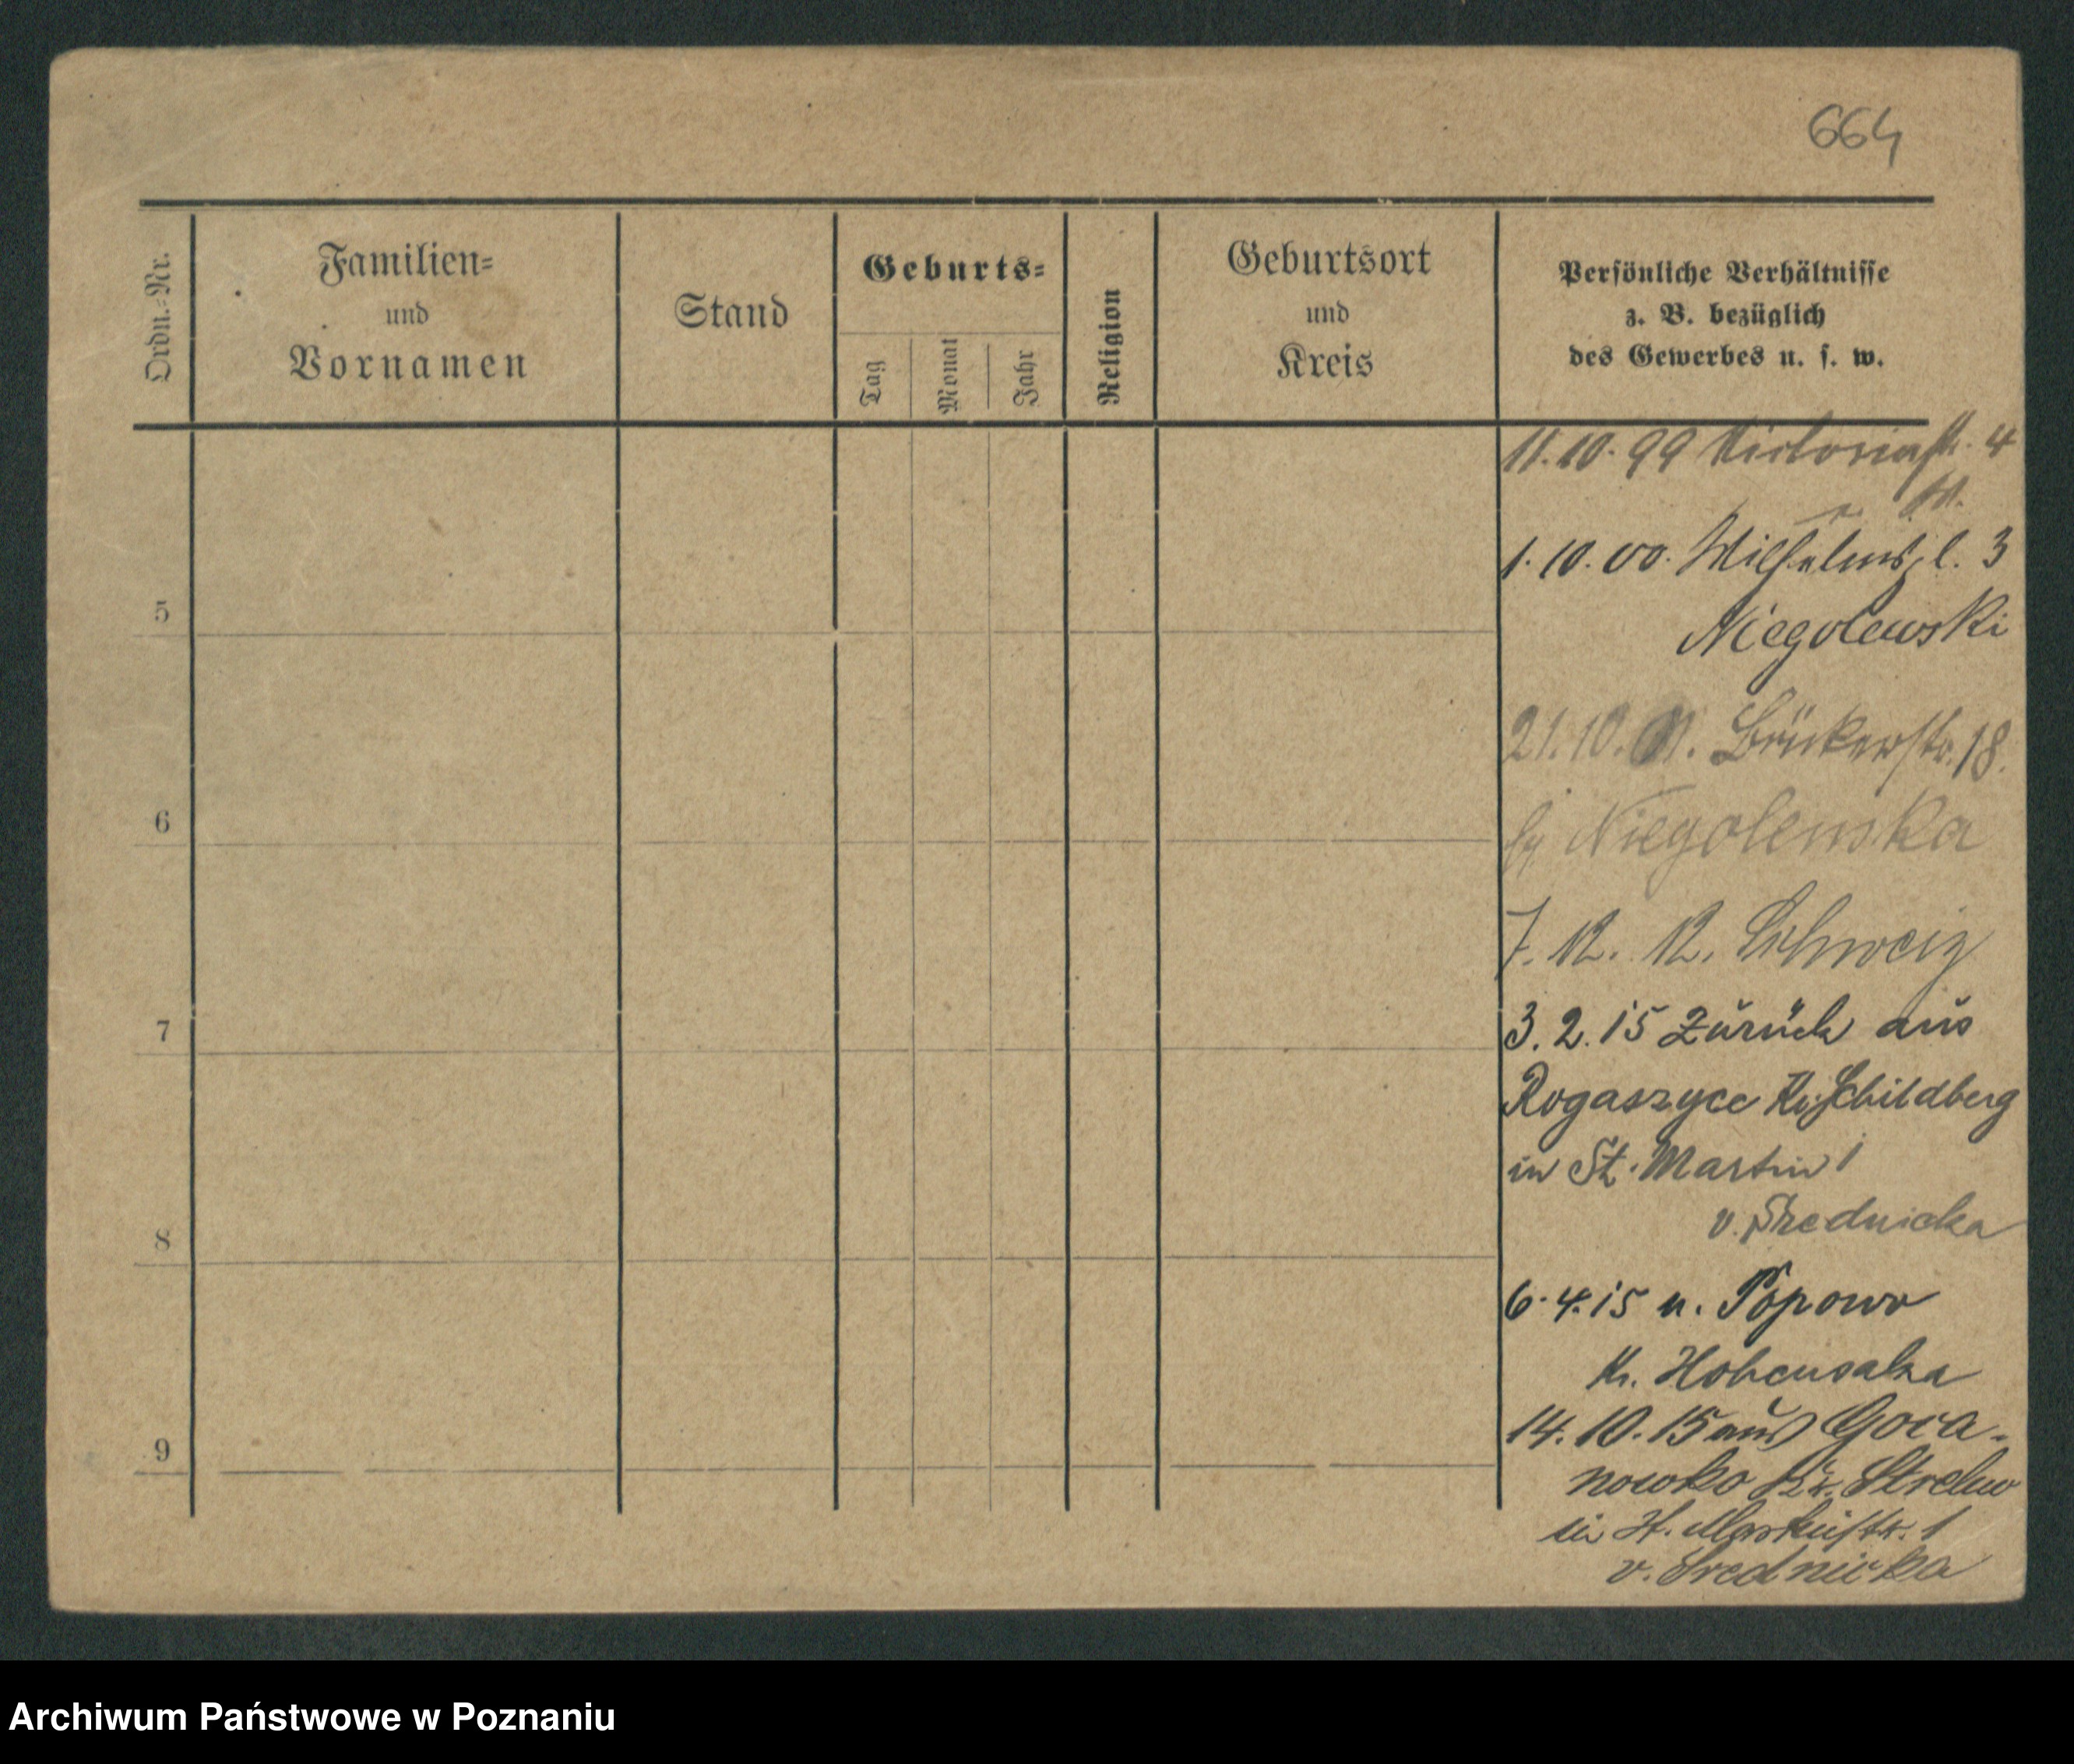 664
Ordn.=Nr.
Familien=
und
Vornamen
Stand
Geburts=
Tag
Monat
Jahr
Religion
Geburtsort
und
Kreis
Persönliche Verhältnisse
z. B. bezüglich
des Gewerbes u. s. w.
11.10.99 Victoriastr. 4
1.10.00. Wilhelmspl. 3
Niegolewski
5
21.10. Brückenstr. 18.
Niegolewska
6
7. 12. 12. Schweiz
3. 2. 15 zurück aus
7
Rogaszyce Kr. Schildberg
in St. Martin 1
v. Srednicka
8
6. 4. 15 n. Popowo
Kr. Hohensalza
14. 10. 15 aus Gora-
9
nowko Kr. Strelno
in St. Martinstr. 1
v. Srednicka
Archiwum Państwowe w Poznaniu